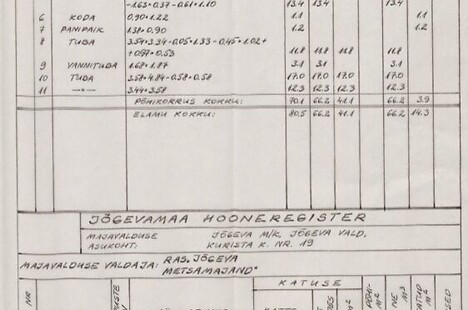 -1.63×0.37 -0.61×1.10 13.4 13.4 13.4
6 KODA 0.90×1.22 1.1 1.1
7 PANIPAIK 1.38×0.90 1.2 1.2
8 TUBA 3.54×3.34-0.05×1.33-0.45×1.02+
+0.97×0.53 11.8 11.8 11.8 11.8
9 VANNITUBA 1.68×1.87 3.1 3.1 3.1
10 TUBA 3.58×4.84-0.58×0.58 17.0 17.0 17.0 17.0
11 —"— 3.44×3.58 12.3 12.3 12.3 12.3
PÕHIKORRUS KOKKU: 70.1 66.2 41.1 66.2 3.9
ELAMU KOKKU: 80.5 66.2 41.1 66.2 14.3
JÕGEVAMAA HOONEREGISTER
MAJAVALDUSE JÕGEVA M/K. JÕGEVA VALD,
ASUKOHT: KURISTA K. NR. 19
MAJAVALDUSE VALDAJA: RAS. JÕGEVA
METSAMAJAND"
KATUSE
NR